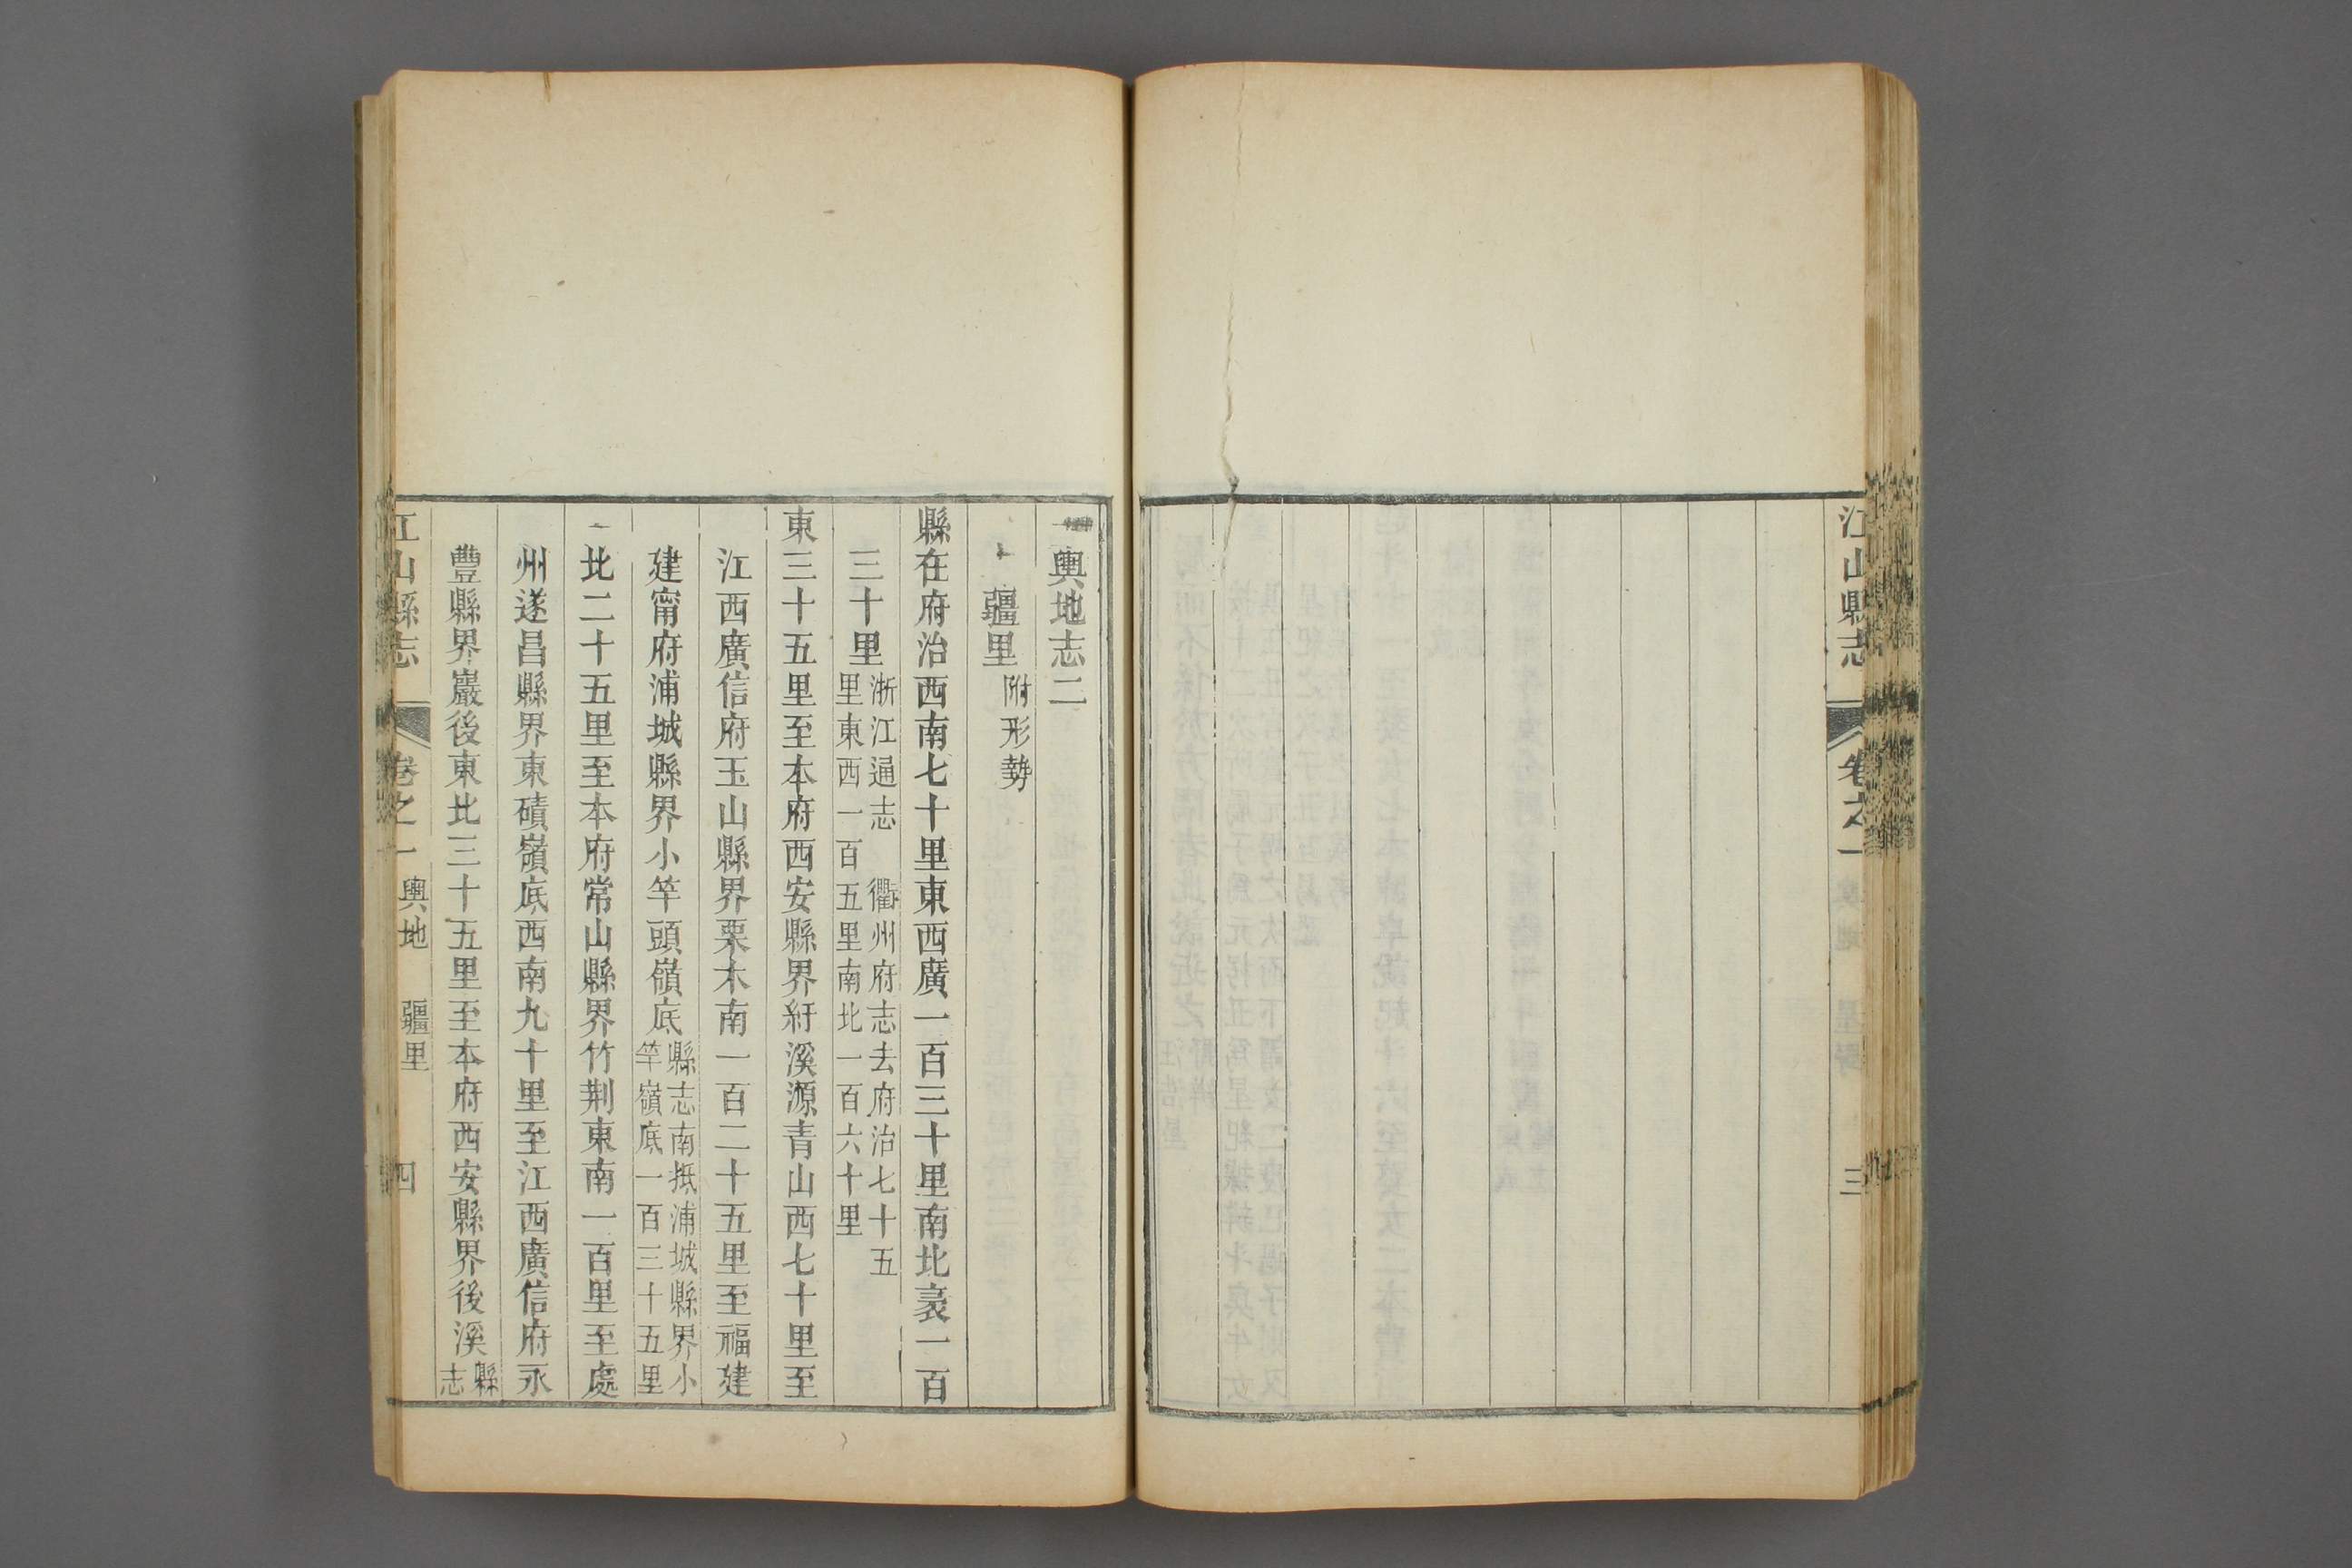 江山縣志 卷之一 輿地 星野 三
輿地志二
疆里附形勢
縣在府治西南七十里東西廣一百三十里南北袤一百
三十里浙江通志 衢州府志去府治七十五
里東西一百五里南北一百六十里
東三十五里至本府西安縣界紆溪源青山西七十里至
江西廣信府玉山縣界栗木南一百二十五里至福建
建甯府浦城縣界小竿頭嶺底縣志南抵浦城縣界小
竿嶺底一百三十五里
北二十五里至本府常山縣界竹荆東南一百里至處
州遂昌縣界東磧嶺底西南九十里至江西廣信府永
豐縣界巖後東北三十五里至本府西安縣界後溪縣
志
江山縣志 卷之一 輿地 疆里 四